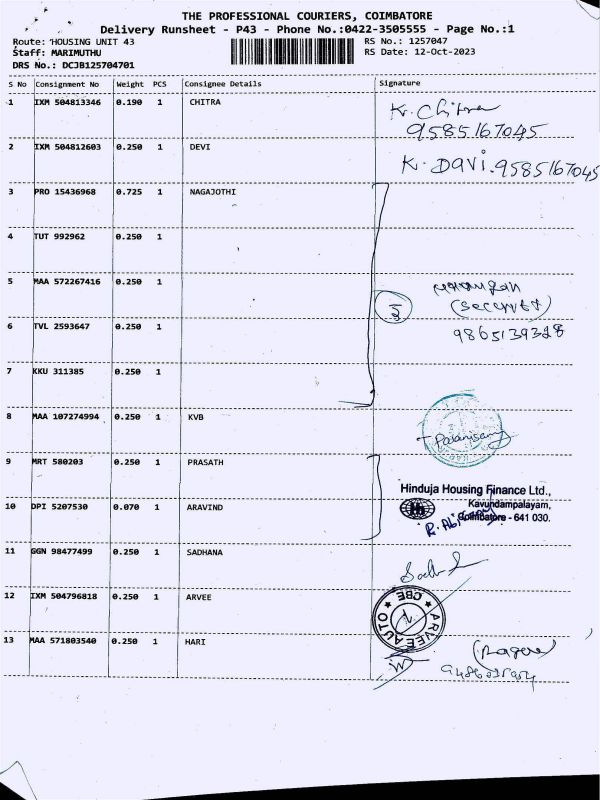 THE PROFESSIONAL COURIERS, COIMBATORE
Delivery Runsheet - P43 - Phone No.:0422-3505555 - Page No.:1
Route: HOUSING UNIT 43
Staff: MARIMUTHU
DRS No.: DCJB125704701
RS No.: 1257047
RS Date: 12-Oct-2023
S No Consignment No Weight PCS Consignee Details Signature
1 IXM 504813346 0.190 1 CHITRA
K. Chitra
9585167045
2 IXM 504812603 0.250 1 DEVI
K. Davi. 9585167045
3 PRO 15436968 0.725 1 NAGAJOTHI
4 TUT 992962 0.250 1
5 MAA 572267416 0.250 1
(Security)
6 TVL 2593647 0.250 1
9865139328
7 KKU 311385 0.250 1
8 MAA 107274994 0.250 1 KVB
Palanisamy
9 MRT 580203 0.250 1 PRASATH
Hinduja Housing Finance Ltd.,
10 DPI 5207530 0.070 1 ARAVIND
Kavundampalayam,
Coimbatore - 641 030.
11 GGN 98477499 0.250 1 SADHANA
12 IXM 504796818 0.250 1 ARVEE
ARVEE AUTO CBE
13 MAA 571803540 0.250 1 HARI